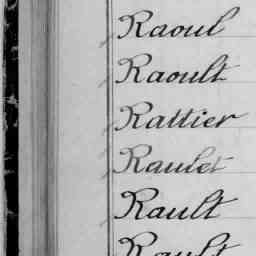 Raoul
Raoult
Rattier
Raulet
Rault
Rault